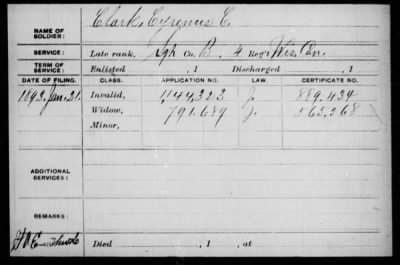 NAME OF SOLDIER: Clark, Cyrenus C.
SERVICE: Late rank, Sgt Co. B, 4 Reg't Wis. Cav.
TERM OF SERVICE: Enlisted , 1 Discharged , 1
DATE OF FILING. CLASS. APPLICATION NO. LAW. CERTIFICATE NO.
1892, Jan. 21. Invalid, 1,144,323 J. 889.434
Widow, 791.689 J. 565,568
Minor,
ADDITIONAL SERVICES:
REMARKS:
Died , 1 , at